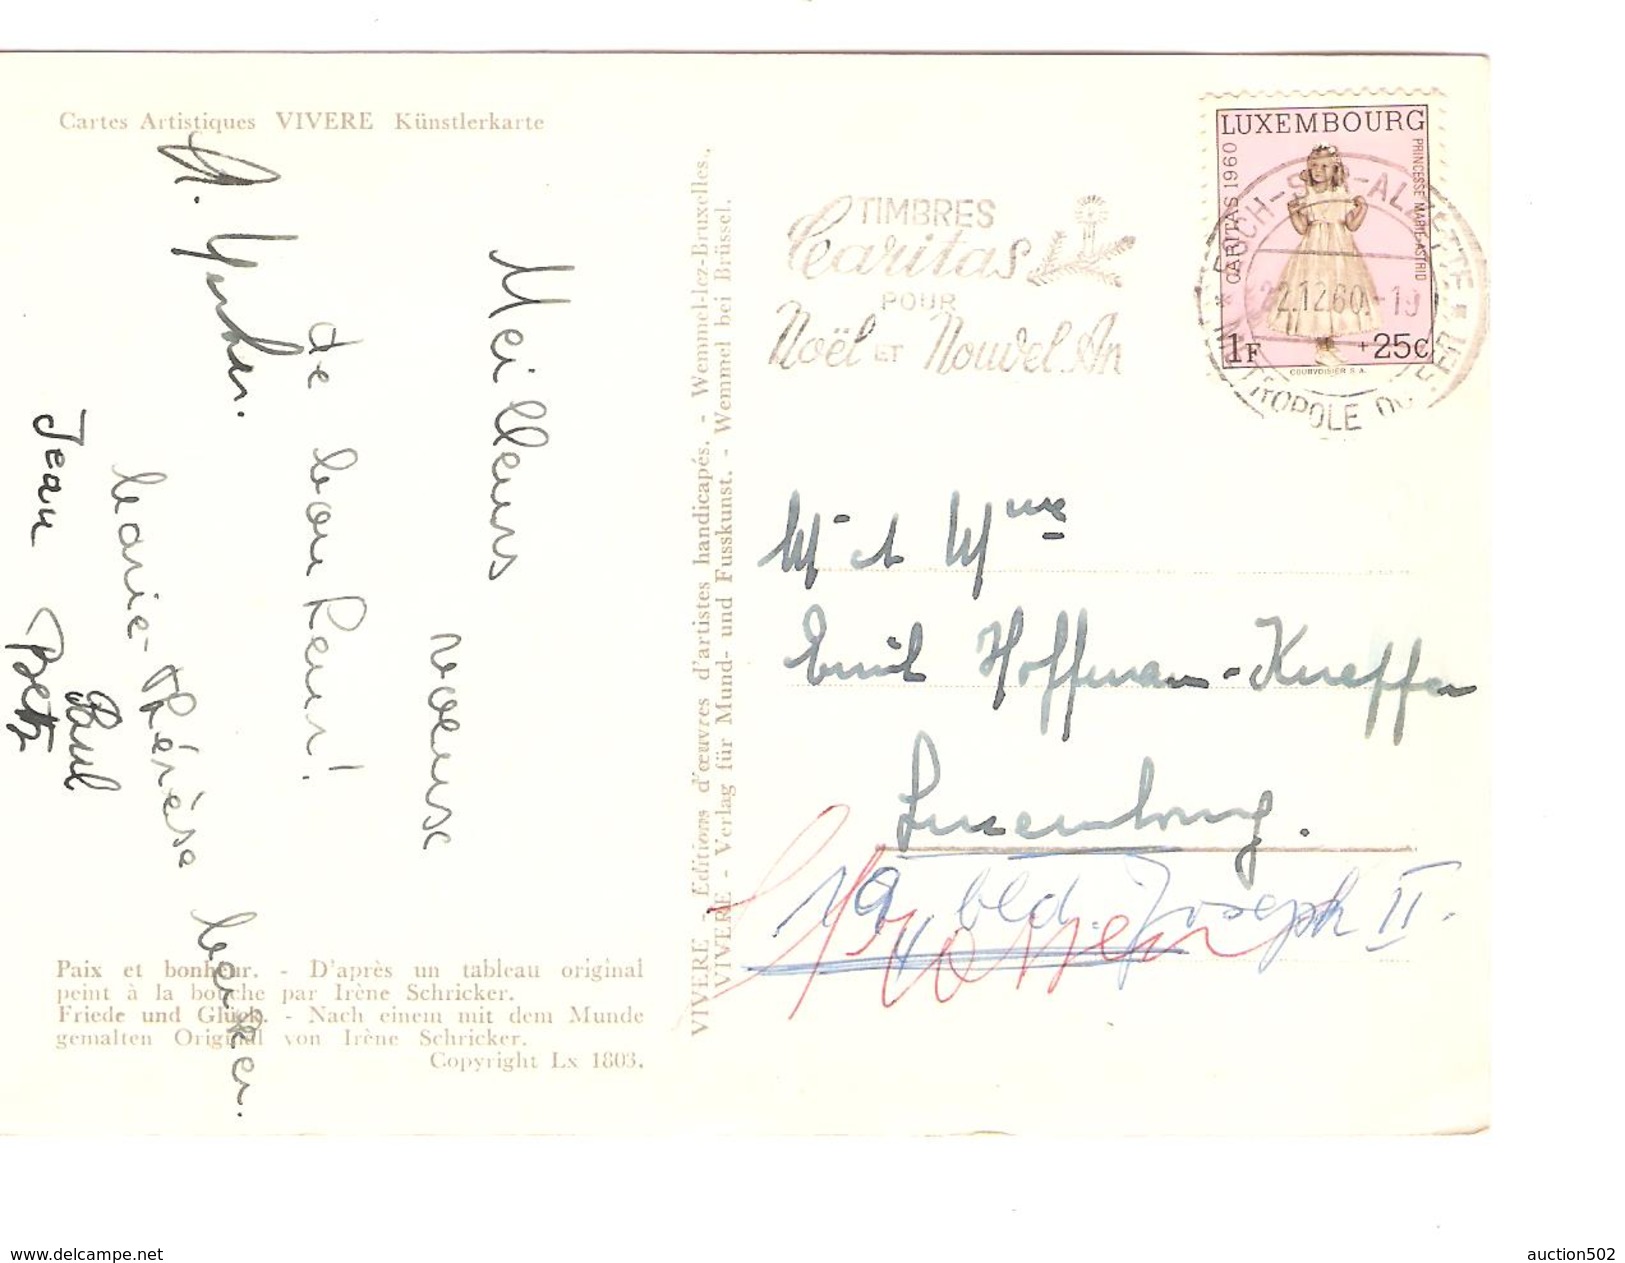 Cartes Artistiques VIVERE Künstlerkarte
Meilleurs
voeuse
de bonheur!
Marie-Thérèse
Jean
Paul
Betz
Paix et bonheur. - D'après un tableau original
peint à la bouche par Irène Schricker.
Friede und Glück. - Nach einem mit dem Munde
gemalten Original von Irène Schricker.
Copyright Lx 1803.
VIVERE - Editions d'œuvres d'artistes handicapés. - Wemmel-lez-Bruxelles.
VIVERE - Verlag für Mund- und Fusskunst. - Wemmel bei Brüssel.
TIMBRES
Caritas
POUR
Noël ET Nouvel An
LUXEMBOURG
CARITAS 1960
PRINCESSE MARIE-ASTRID
1F +25c
COURVOISIER S.A.
ESCH-SUR-ALZETTE
22.12.60.-19
METROPOLE DU FER
Mr et Mme
Emil Hoffmann-Kneffen
Luxembourg.
19, bld. Joseph II.
www.delcampe.net
auction502